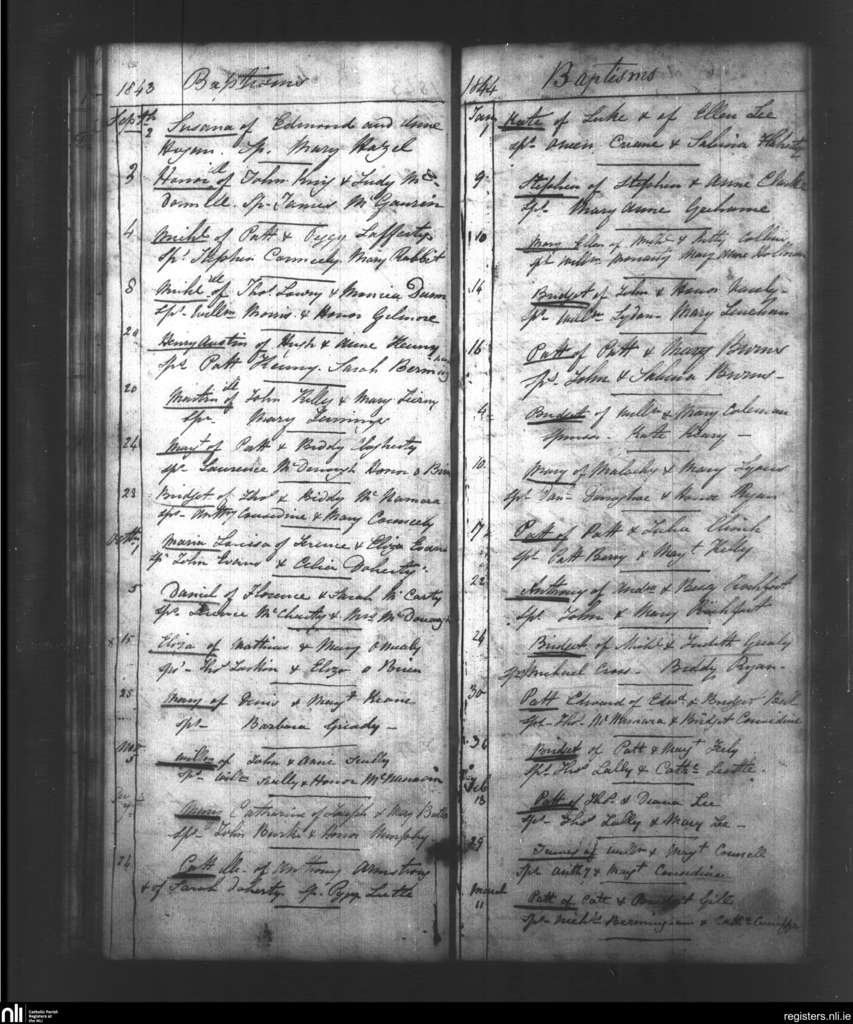 1843 Baptisms
Septh 2 Susana of Edmond and Anne
Hogan. Sp. Mary Hazel
3 Honor ille of John King & Judy Mc
Donnell. Sp. James Mc Gaurin
4 Michl of Patt & Peggy Lafferty
Sps Stephen Conneely Mary Rabbit
8 Michl ille of Thos Lowry & Monica Dunn
Sps Willm Morris & Honor Gilmore
20 Henry Austin of Hugh & Anne Heany
Sps Patt Heany. Sarah
20 Martin ille of John Kelly & Mary Tierny
Sps Mary Jennings
24 Magt of Patt & Biddy Dogherty
sps Laurence Mc Donough Honor o Brien
23 Bridget of Thos & Biddy Mc Namara
sps Considine & Mary Conneely
Octr 1 Maria Louisa of Terence & Eliza Evans
sps John Evans & Celia Doherty
5 Daniel of Florence & Sarah Mc Carty
sps Mc Charty & Mrs Mc Donough
15 Eliza of Mathias & Mary
sps Thos Larkin & Eliza o Brien
25 Mary of Denis & Magt Keane
sps Barbara Gready
Nov 5 Willm of John & Anne Scully
sps Willm Scully & Honor
Dec Mary Catharine of Joseph & Mary
sps John Burke & Honor Murphy
24 Catt ille of Anthony Armstrong
& of Sarah Doherty Sp. Peggy Leetle
1844 Baptisms
Jany 1 Kate of Luke & of Ellen Lee
sps Owen Creane & Sabina Flaherty
9 Stephen of Stephen & Anne Clarke
Sps Mary Anne Geehame
10 Mary Ellen of Michl & Kitty Collins
sps Willm Moriarty Mary Anne
14 Bridget of John & Honor
sps Willm Lydan Mary Lenehan
16 Patt of Patt & Mary Burns
sps John & Sabina Burns
4 Bridget of Willm & Mary Coleman
sponsor. Kate Heary
10 Mary of Malachy & Mary Lyons
sps & Honor Ryan
17 Patt of Patt & Julia
sps Patt Barry & Magt Kelly
22 Anthony of Andw & Biddy Rochfort
Sps John & Mary Rochfort
24 Bridget of Michl & Judith Grealy
sps Michael Cross Biddy Ryan
30 Patt Edward of Edwd & Bridget
sps Thos Mc Namara & Bridget Considine
30 Bridget of Patt & Magt Feely
sps Thos Lally & Cathe Leetle
Feb 13 Patt of Thos & Diana Lee
sps Thos Lally & Mary Lee
29 James of Willm & Magt Connell
sps Anthy & Magt Considine
March 11 Patt of Patt & Bridget Gill
sps Michl Bermingham & Cathe
nli Catholic Parish
Registers at
the NLI
registers.nli.ie